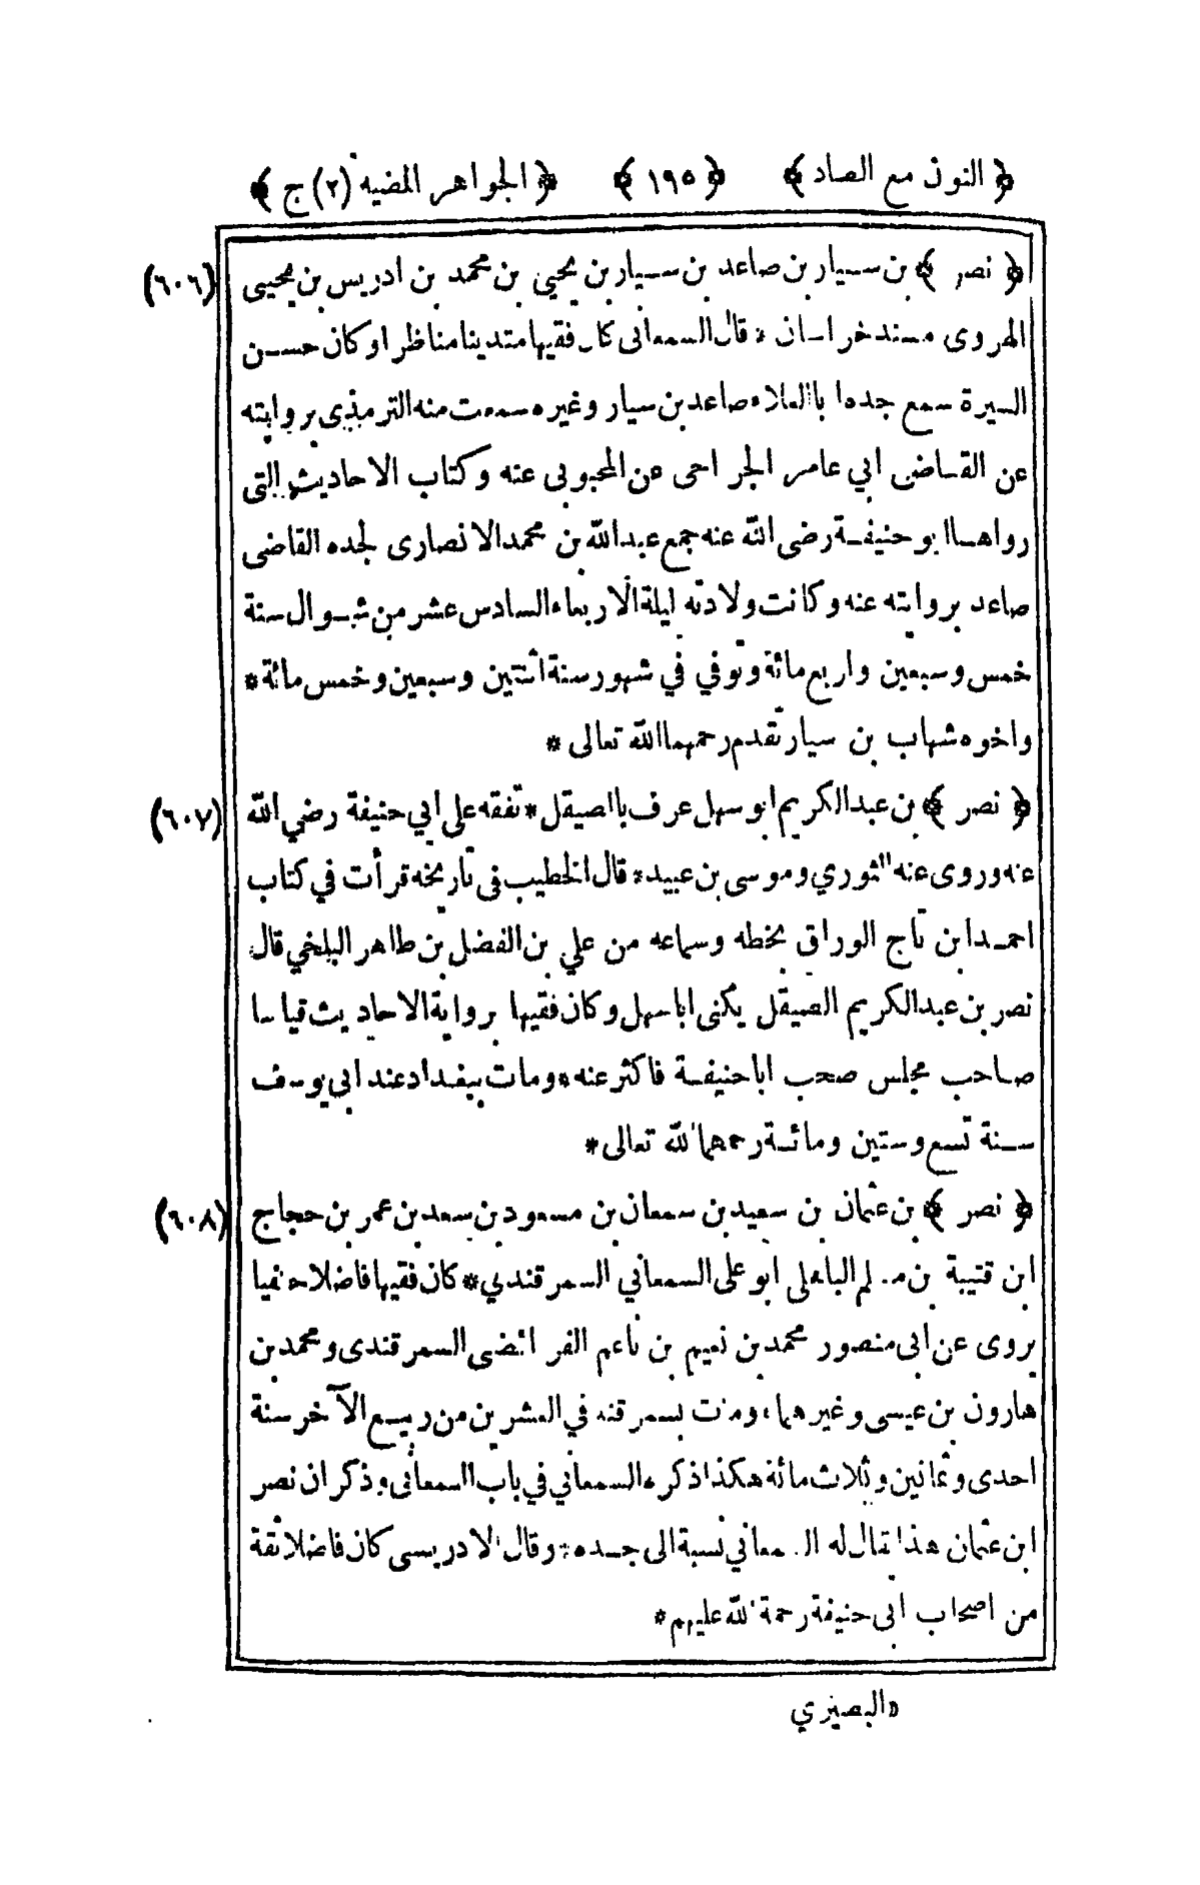 ﴿ النون مع الصاد ﴾ ﴿ ١٩٥ ﴾ ﴿ الجواهر المضيه (٢) ج ﴾
﴿ نصر ﴾ بن سيار بن صاعد بن سيار بن يحيى بن محمد بن ادريس بن يحيى (٦٠٦)
الهروى مسند خراسان * قال السمعانى كان فقيها متدينا مناظرا وكان حسن
السيرة سمع جده ابا العلاء صاعد بن سيار وغيره سمعت منه الترمذى بروايته
عن القاضى ابي عامر الجراحى عن المحبوبى عنه وكتاب الاحاديث التى
رواها ابو حنيفة رضى الله عنه جمع عبد الله بن محمد الانصارى لجده القاضى
صاعد بروايته عنه وكانت ولادته ليلة الاربعاء السادس عشر من شوال سنة
خمس وسبعين واربع مائة وتوفي في شهور سنة اثنتين وسبعين وخمس مائة *
واخوه شهاب بن سيار تقدم رحمهما الله تعالى *
﴿ نصر ﴾ بن عبد الكريم ابو سهل عرف بالصيقل * تفقه على ابي حنيفة رضي الله (٦٠٧)
عنه وروى عنه الثوري وموسى بن عبيد * قال الخطيب فى تاريخه قرأت في كتاب
احمد ابن تاج الوراق بخطه وسماعه من علي بن الفضل بن طاهر البلخي قال
نصر بن عبد الكريم الصيقل يكنى ابا سهل وكان فقيها برواية الاحاديث قياسا
صاحب مجلس صحب ابا حنيفة فاكثر عنه * ومات ببغداد عند ابى يوسف
سنة تسع وستين ومائة رحمهما الله تعالى *
﴿ نصر ﴾ بن عثمان بن سعيد بن سمعان بن مسعود بن سعد بن عمر بن حجاج (٦٠٨)
ابن قتيبة بن مسلم الباهلى ابو على السمعاني السمرقندي * كان فقيها فاضلا حنفيا
يروى عن ابى منصور محمد بن نعيم بن ناعم الفرائضى السمرقندى ومحمد بن
هارون بن عيسى وغيرهما * ومات بسمرقند في العشرين من ربيع الآخر سنة
احدى وثمانين وثلاث مائة هكذا ذكره السمعاني في باب السمعانى وذكر ان نصر
ابن عثمان هذا يقال له السمعاني نسبة الى جده * وقال الادريسى كان فاضلا ثقة
من اصحاب ابى حنيفة رحمة الله عليهم *